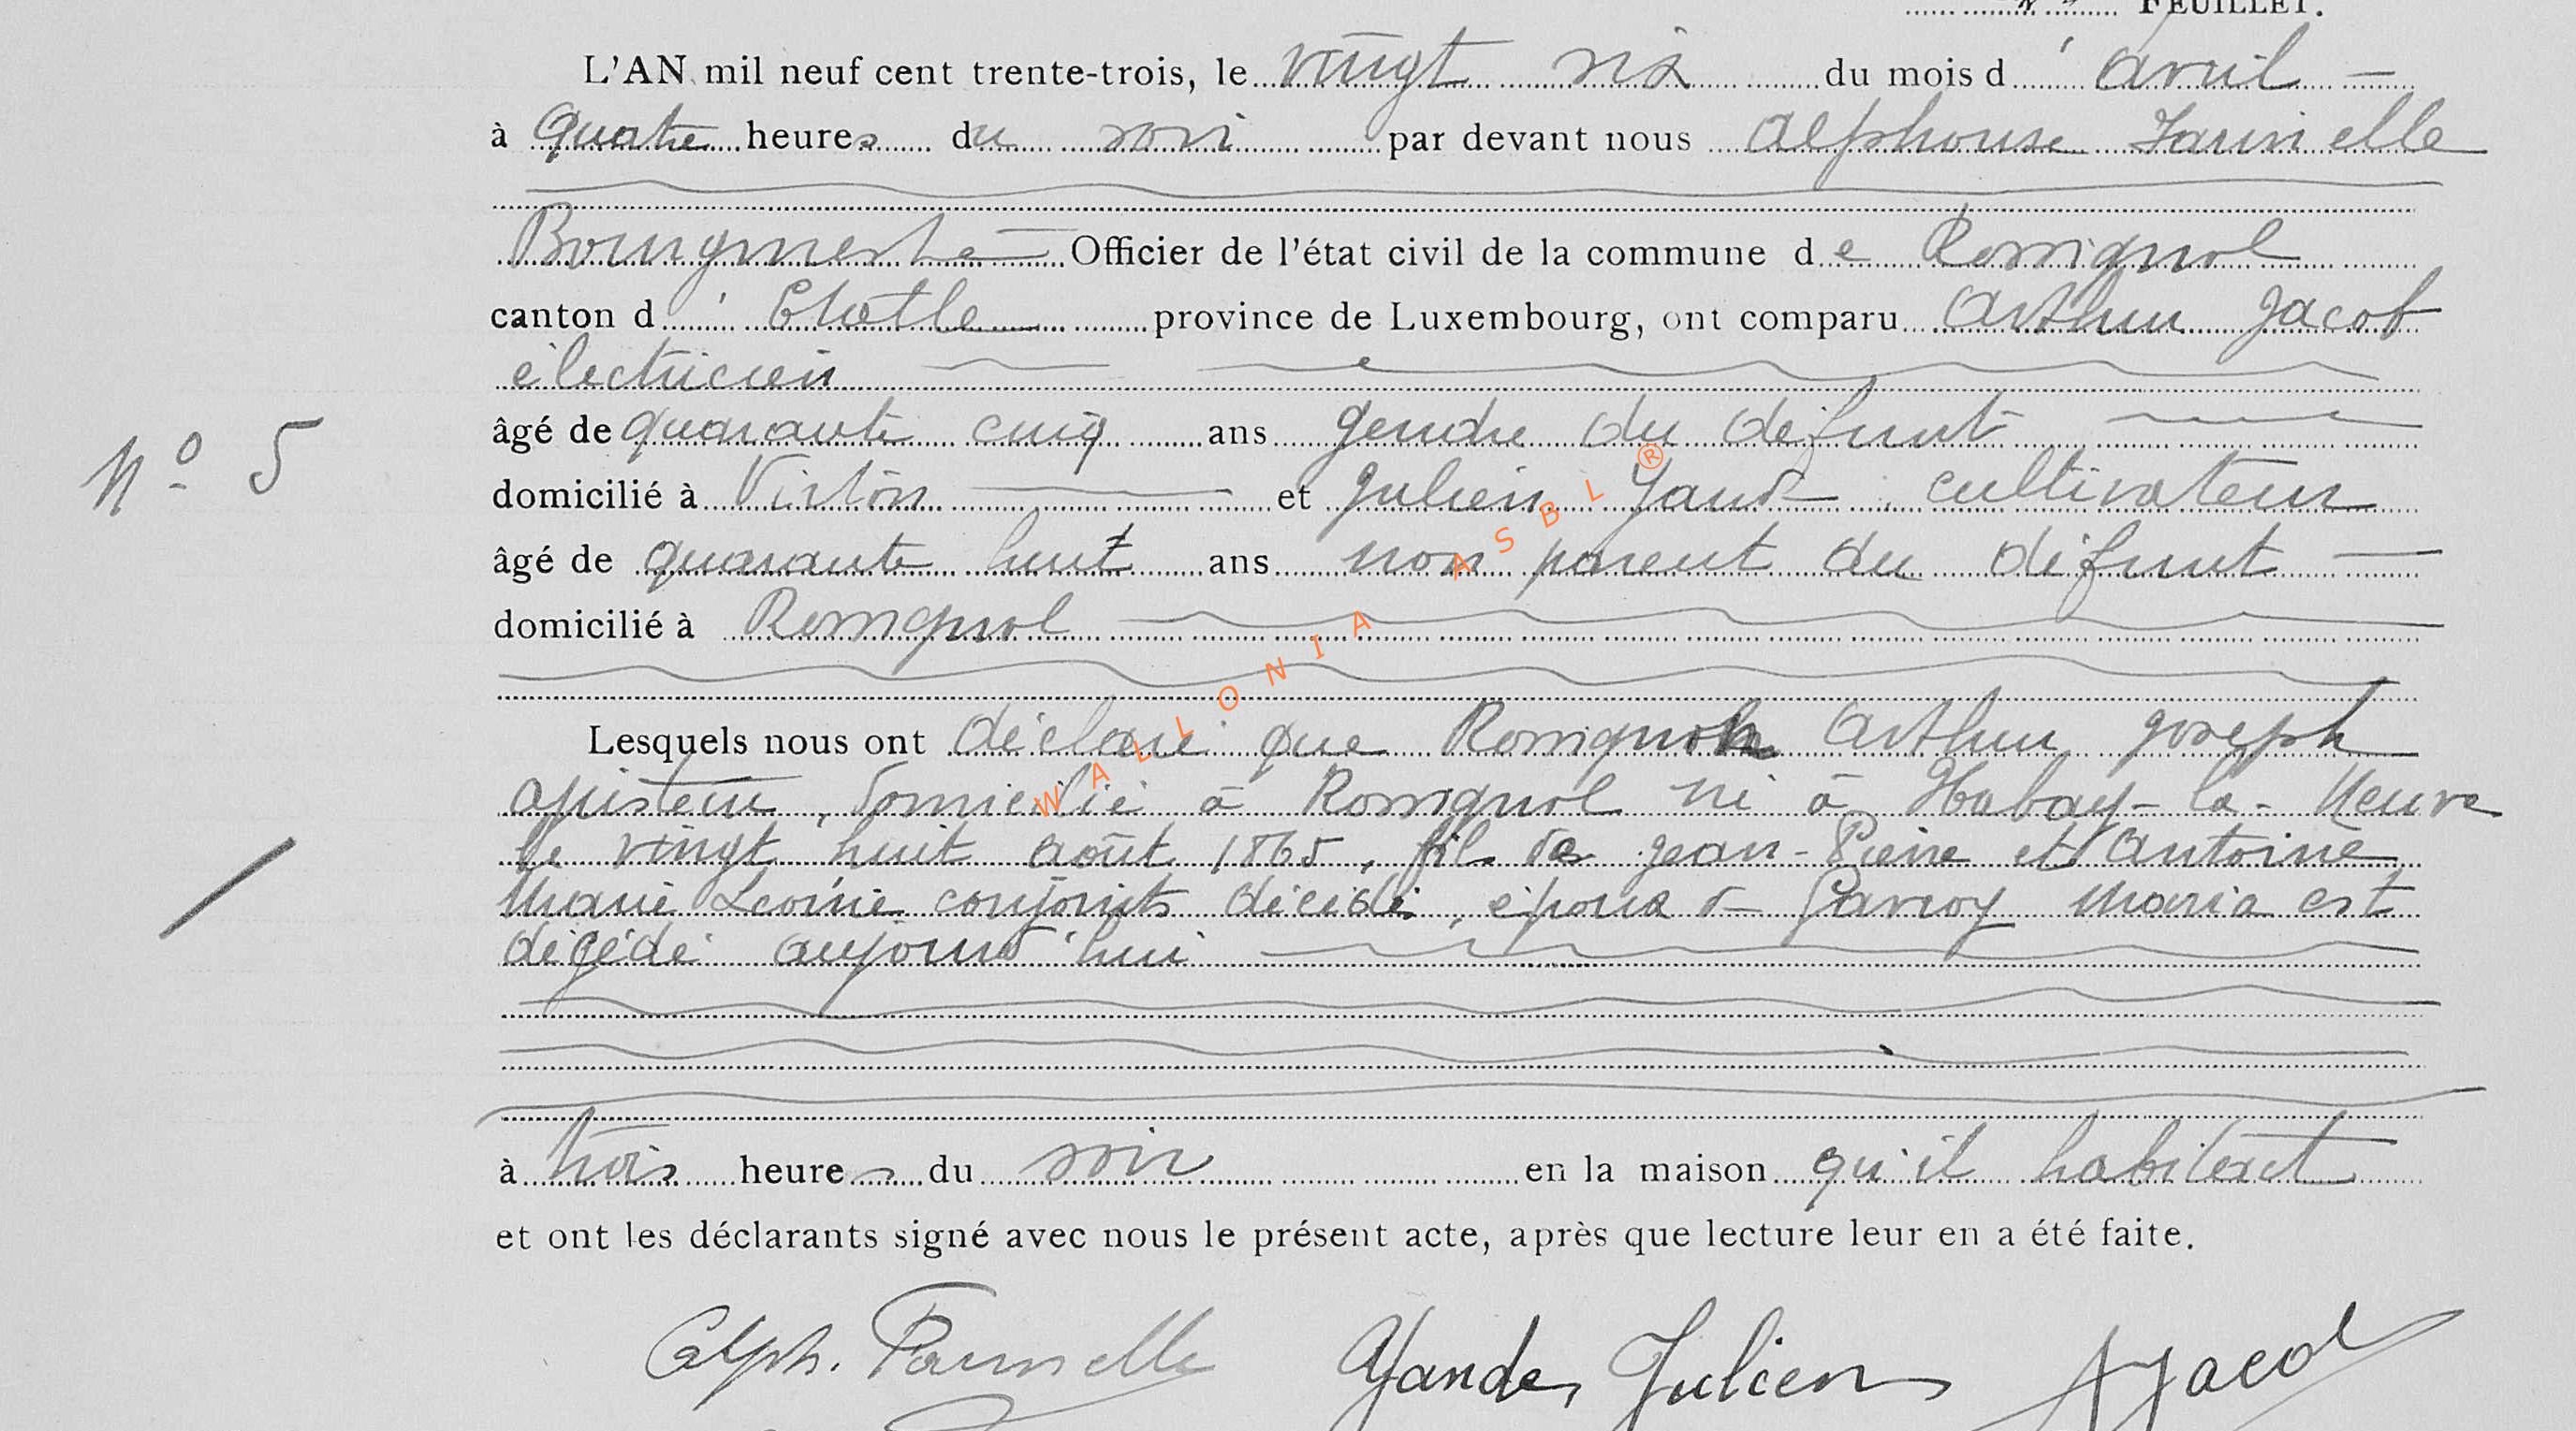 FEUILLET.
L'AN mil neuf cent trente-trois, le vingt six du mois d' avril
à quatre heures du soir par devant nous Alphonse
Bourgmestre Officier de l'état civil de la commune de Rossignol
canton d' Etalle province de Luxembourg, ont comparu Arthur Jacob
électricien
âgé de quarante cinq ans gendre du défunt
N° 5
domicilié à Virton et Julien cultivateur
âgé de quarante huit ans non parent du défunt
domicilié à Rossignol
Lesquels nous ont déclaré que Rossignon Arthur Joseph
domicilié à Rossignol né à Habay-la-Neuve
le vingt huit août 1865, fils de Jean-Pierre et Antoine
Marie Léonie conjoints décédés, époux de Gavroy Maria est
décédé aujourd'hui
à trois heures du soir en la maison qu'il habitait
et ont les déclarants signé avec nous le présent acte, après que lecture leur en a été faite.
Alph. Julien AJacob
WALLONIA ASBL®